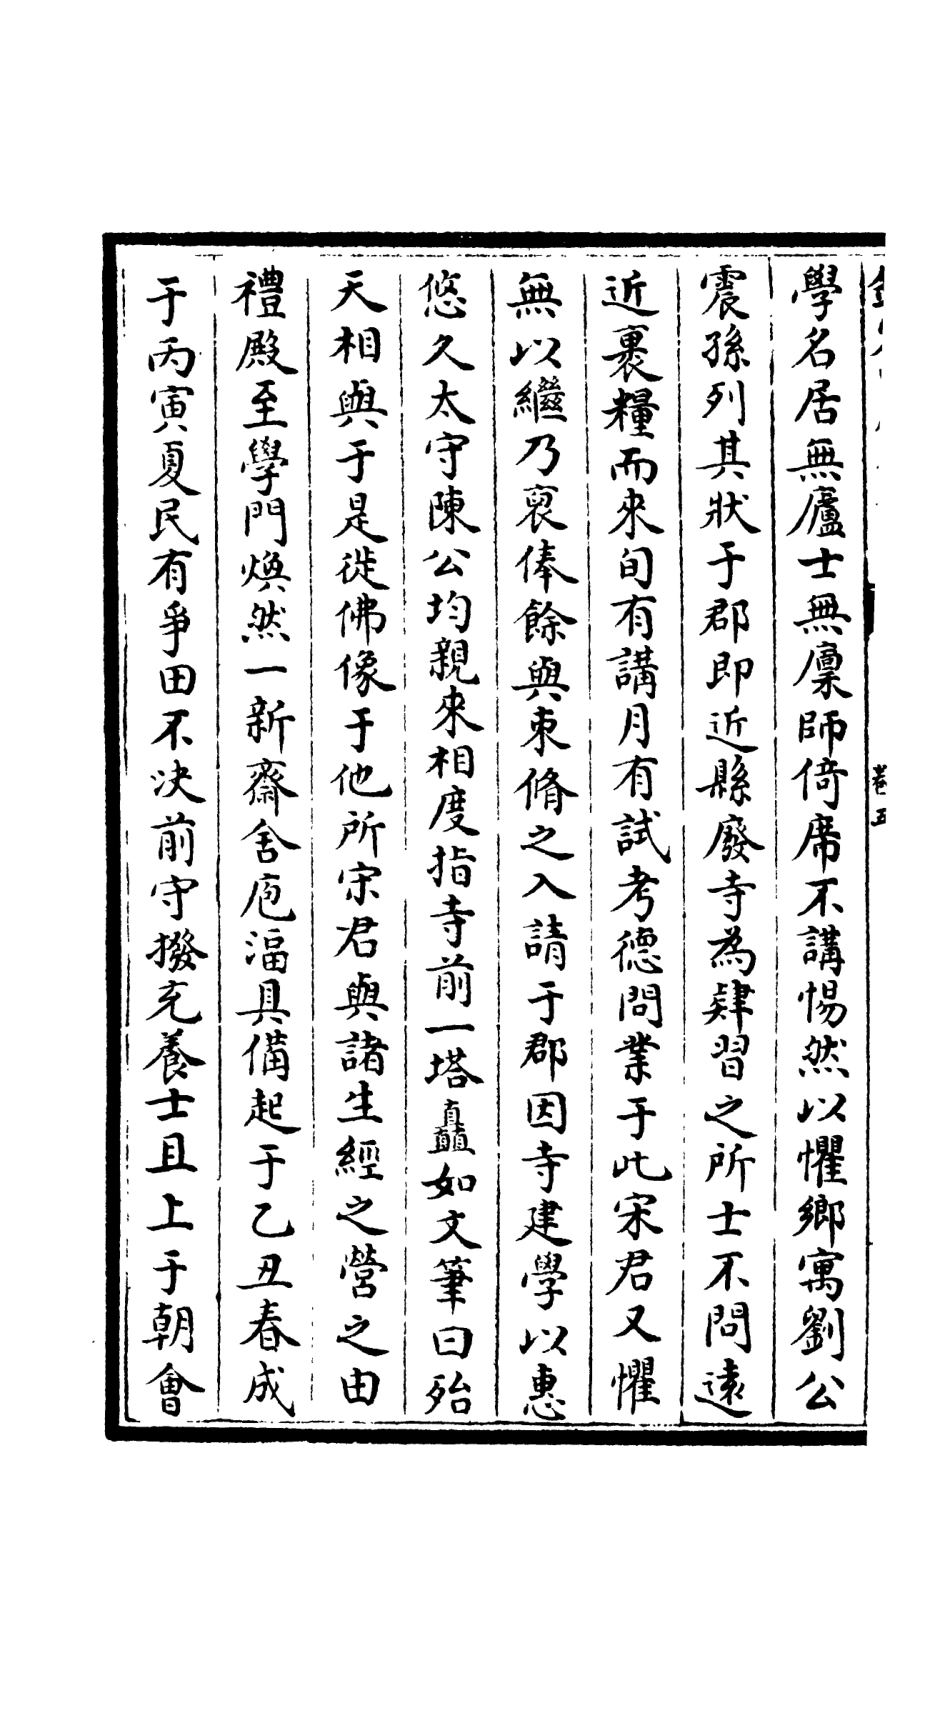 卷五
學名居無廬士無廩師倚席不講惕然以懼鄉寓劉公
震孫列其狀于郡即近縣廢寺為肄習之所士不問遠
近裹糧而來旬有講月有試考德問業于此宋君又懼
無以繼乃裒俸餘與束脩之入請于郡因寺建學以惠
悠久太守陳公均親來相度指寺前一塔矗如文筆曰殆
天相與于是徙佛像于他所宋君與諸生經之營之由
禮殿至學門煥然一新齋舍庖湢具備起于乙丑春成
于丙寅夏民有爭田不决前守撥充養士且上于朝會